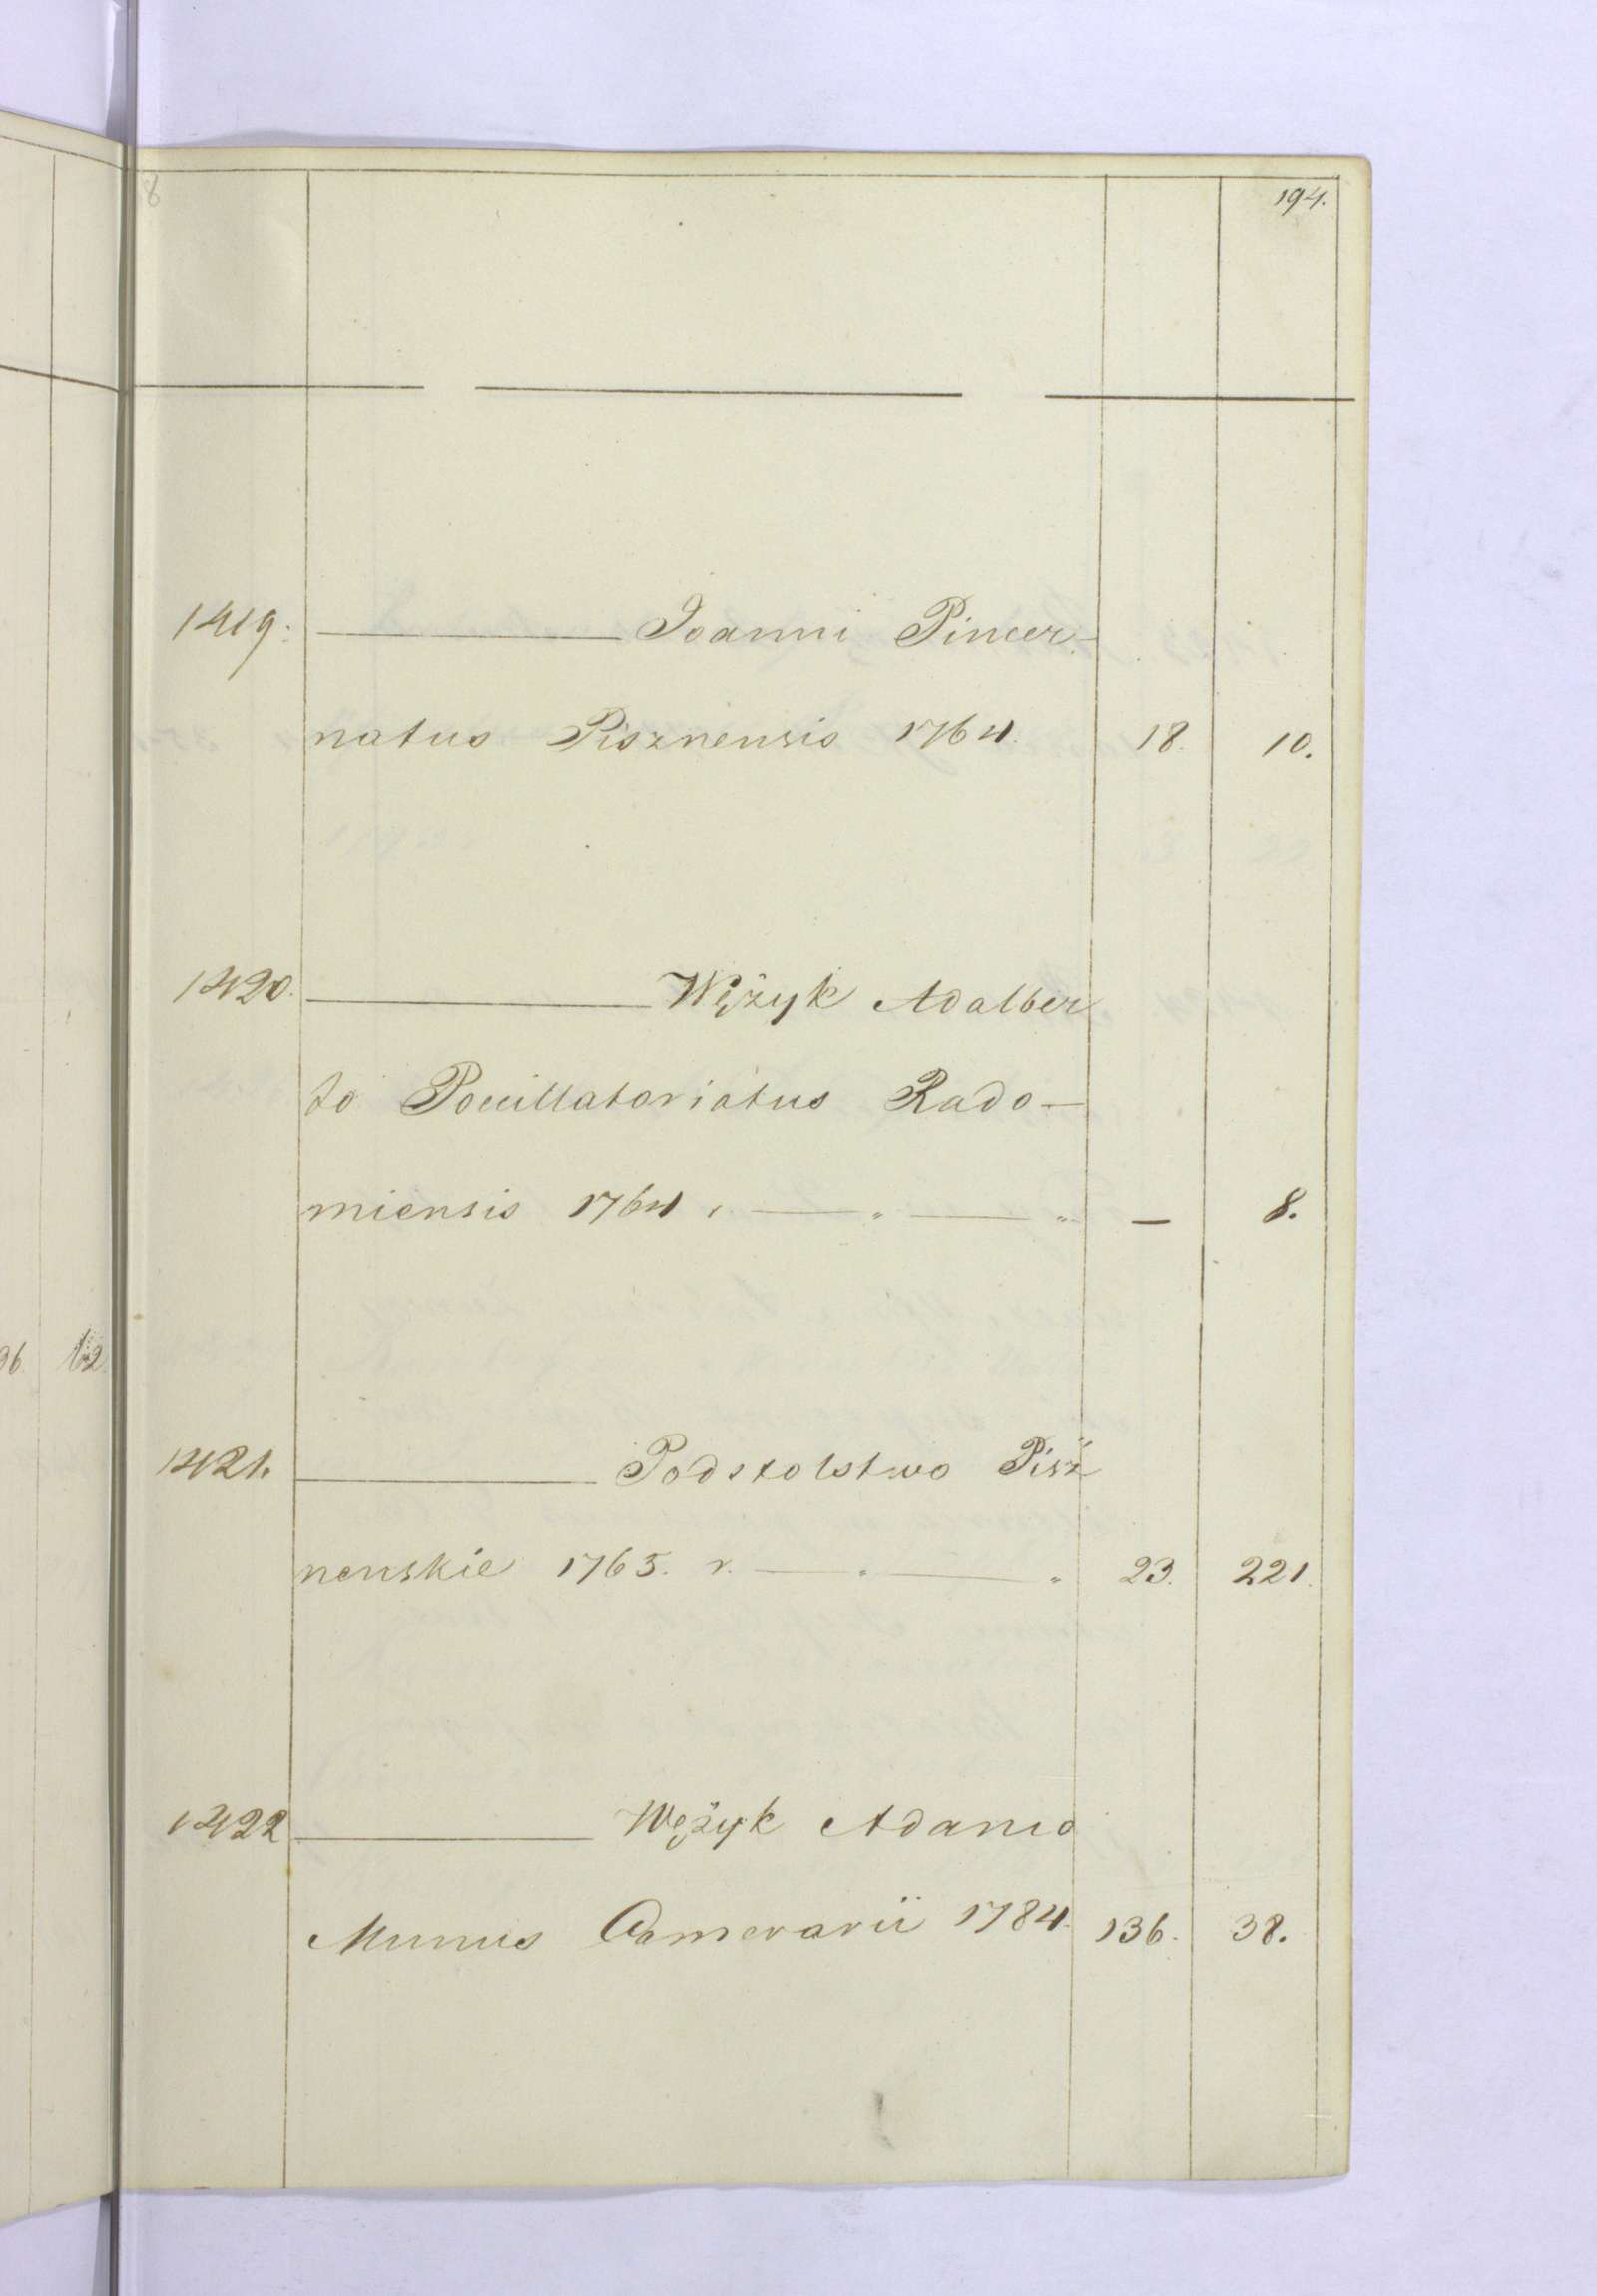 194.
1419. — Joanni Pincer-
natus Pisznensis 1764. 18. 10.
1420. — Wężyk Adalber
to Pocillatoriatus Rado-
miensis 1764 — 8.
1421. — Podstolstwo Pisz
nenskie 1765. r. — 23. 221.
1422 — Wężyk Adamo
Munus Camerarii 1784. 136. 38.